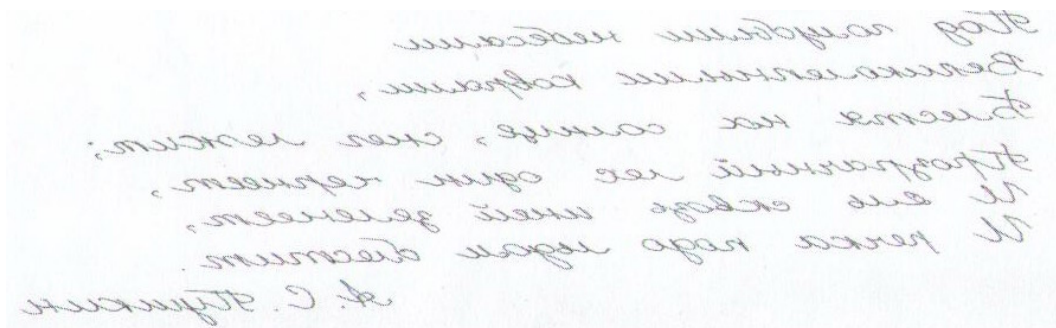 Под голубыми небесами
Великолепными коврами,
Блестя на солнце, снег лежит;
Прозрачный лес один чернеет,
И ель сквозь иней зеленеет,
И речка подо льдом блестит.
А С Пушкин